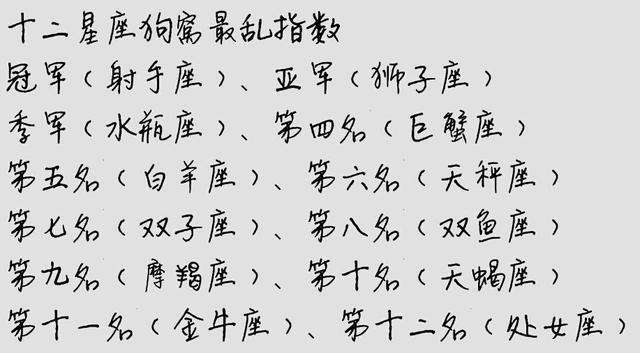 十二星座狗窝最乱指数
冠军（射手座）、亚军（狮子座）
季军（水瓶座）、第四名（巨蟹座）
第五名（白羊座）、第六名（天秤座）
第七名（双子座）、第八名（双鱼座）
第九名（摩羯座）、第十名（天蝎座）
第十一名（金牛座）、第十二名（处女座）